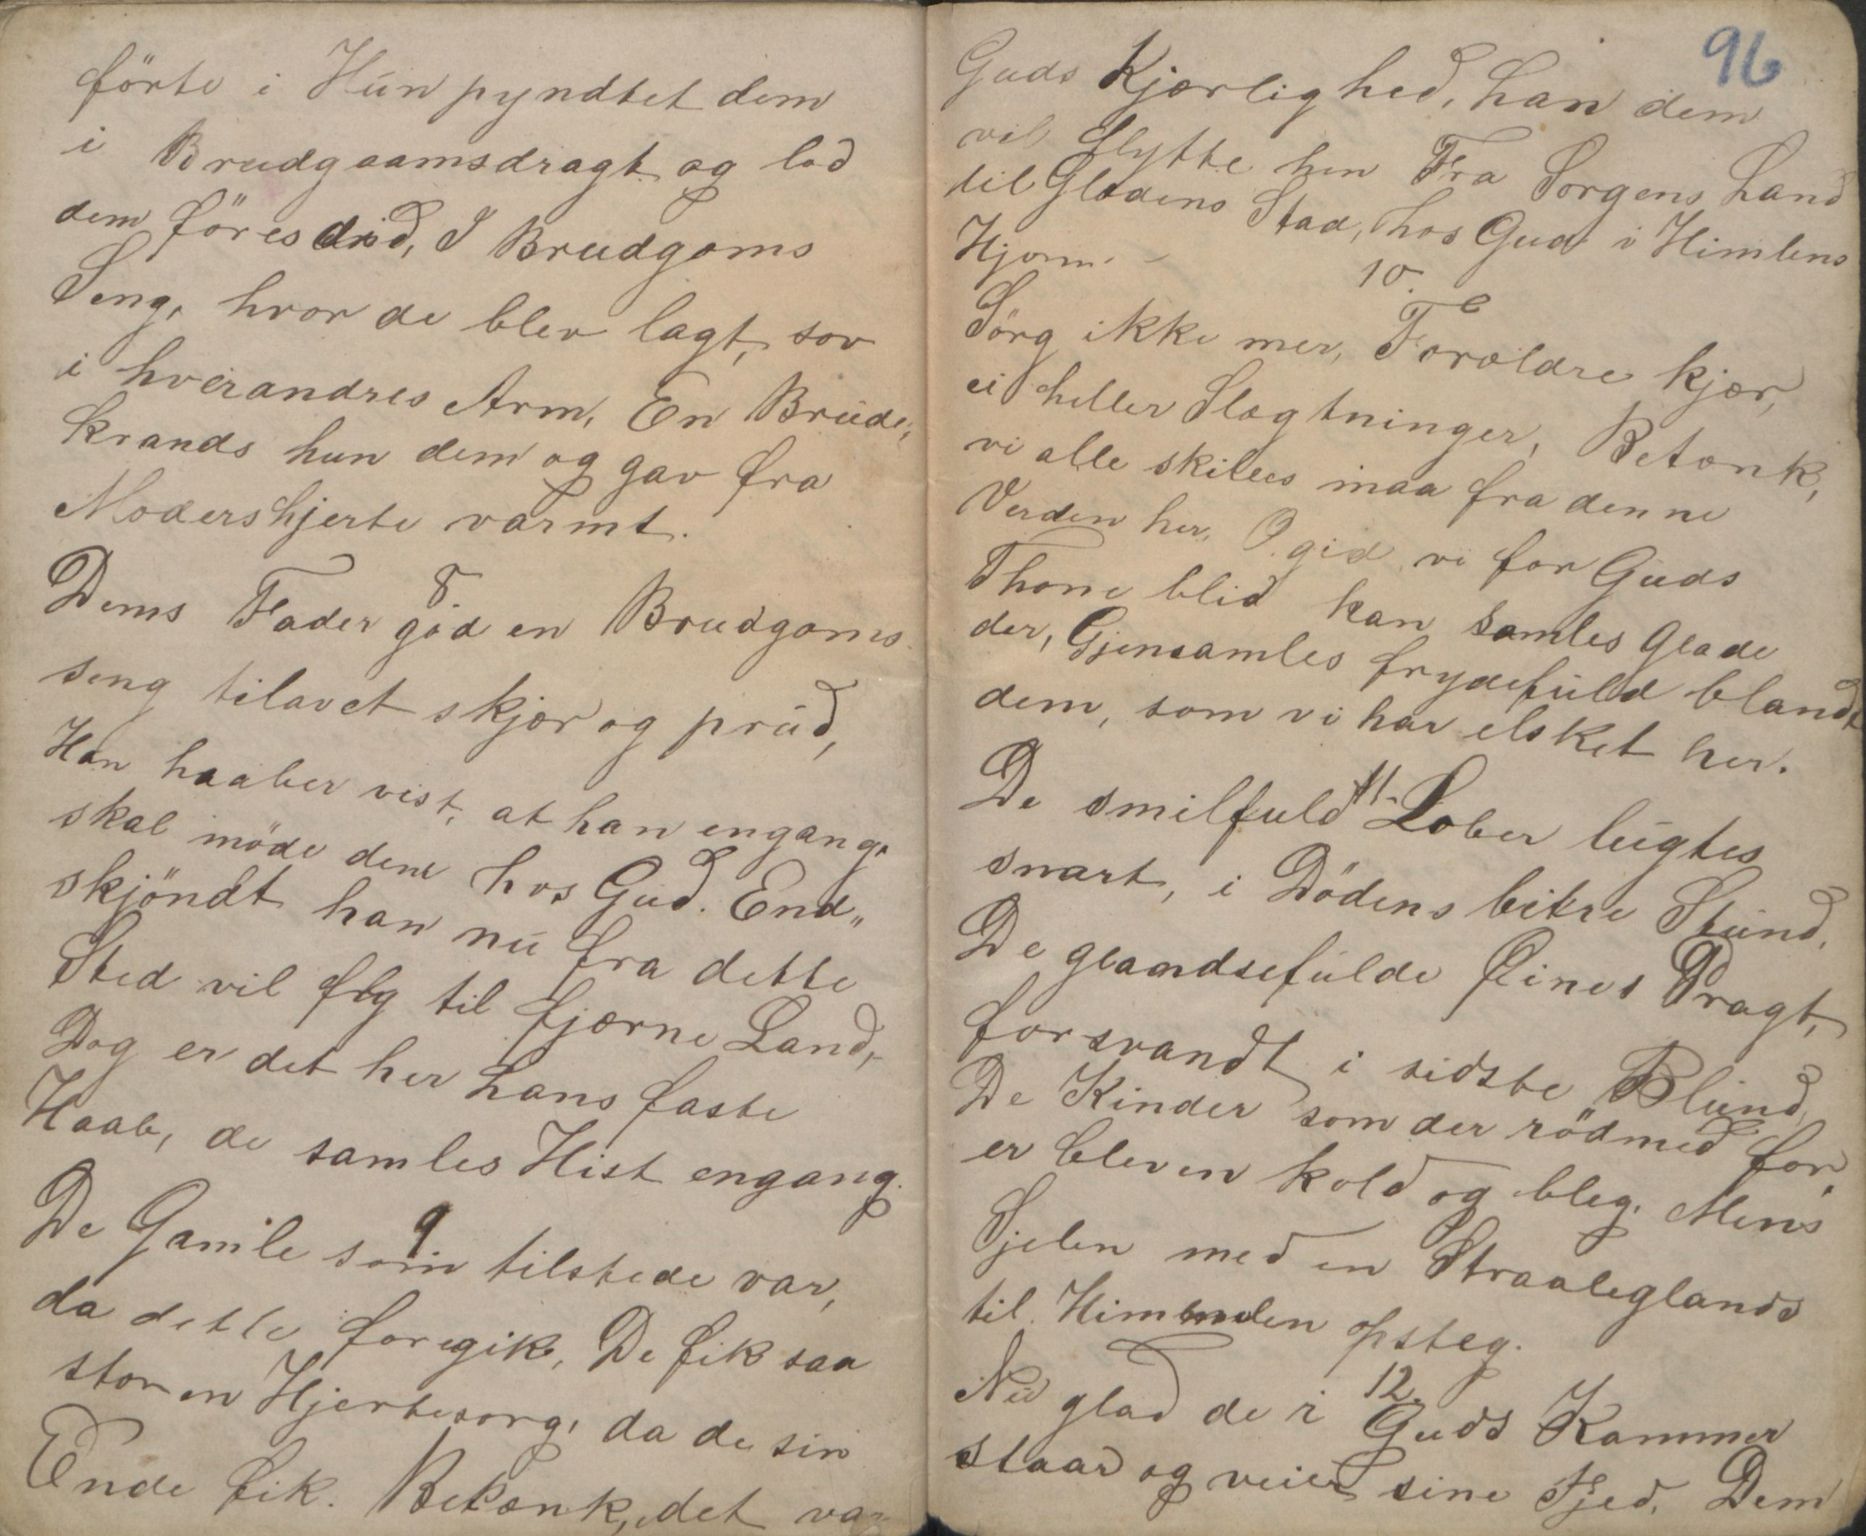 förte i Hun pyndtet dem
i Brudgaamsdragt og lod
dem föres did, I Brudgoms
Seng, hvor de blev lagt, sov
i hverandres Arm, En Brude,,
krands hun dem og gav fra
Modershjerte varmt.
8
Dems Fader god en Brudgoms
seng tilavet skjær og prud,
Han haaber vist, at han engang,
skal möde dem hos Gud. End,,
skjöndt han nu fra dette
Sted vil fly til fjærne Land,
Dog er det her hans faste
Haab, de samles Hist engang.
9
De Gamle som tilstede var,
da dette foregik, De fik saa
stor en Hjertesorg, da de sin
Ende fik. Betænk, det var
96
Guds Kjærlighed, han dem
vil flytte hen Fra Sorgens Land
til Glædens Stad, hos Gud i Himlens
Hjem.
10.
Sörg ikke mer, Foræld​re kjær,
ei heller Slægtninger, Betænk,
vi alle skilles maa fra denne
Verden her, O gid vi for Guds
Thone blid kan samles glade
der, Gjensamles frydefuld blandt
dem, som vi har elsket her.
11.
De smilfuld Læber lugtes
snart, i Dödens bitre Stund,
De glandsefulde Öines Pragt,
forsvandt i sidste Blund,
De Kinder som der rödmed för,
er bleven kold og bleg, Mens
Sjelen med en Straaleglands
til Himmelen opsteg.
12.
Nu glad de i Guds Kammer
staar og veier sine Fjed, Dem